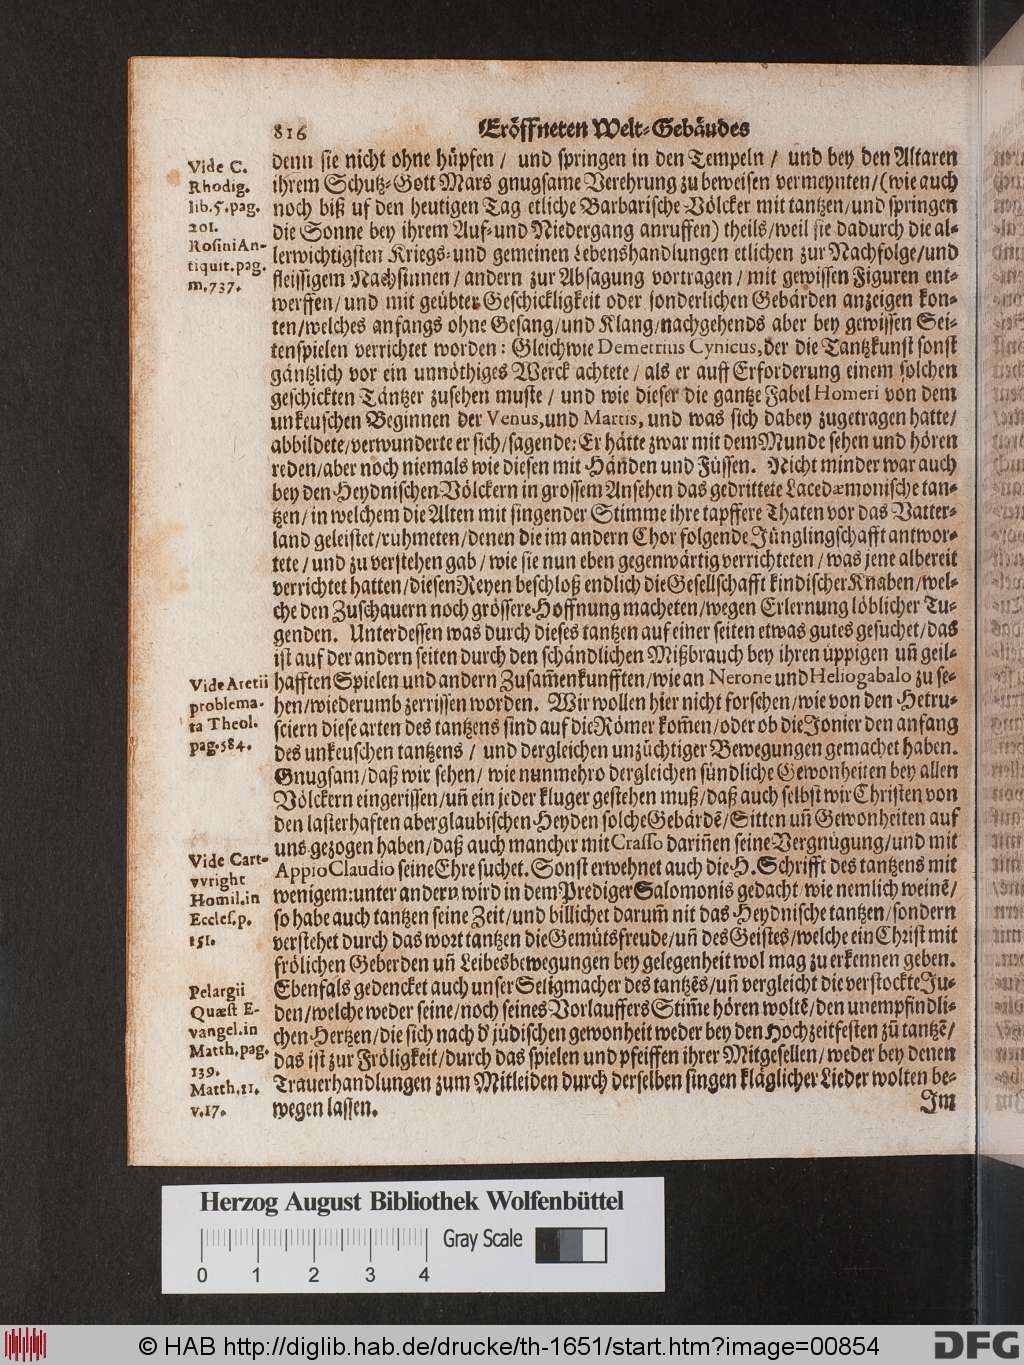 816 Eröffneten Welt-Gebäudes
denn sie nicht ohne hüpfen / und springen in den Tempeln / und bey den Altaren
ihrem Schutz-Gott Mars gnugsame Verehrung zu beweisen vermeynten/(wie auch
noch biß uf den heutigen Tag etliche Barbarische Völcker mit tantzen/und springen
die Sonne bey ihrem Auf-und Niedergang anruffen) theils/weil sie dadurch die al-
lerwichtigsten Kriegs-und gemeinen Lebenshandlungen etlichen zur Nachfolge/und
fleissigem Nachsinnen/andern zur Absagung vortragen/mit gewissen Figuren ent-
werffen/und mit geübter Geschickligkeit oder sonderlichen Gebärden anzeigen kon-
ten/welches anfangs ohne Gesang/und Klang/nachgehends aber bey gewissen Sei-
tenspielen verrichtet worden: Gleichwie Demetrius Cynicus,der die Tantzkunst sonst
gäntzlich vor ein unnöthiges Werck achtete/als er auff Erforderung einem solchen
geschickten Täntzer zusehen muste/und wie dieser die gantze Fabel Homeri von dem
unkeuschen Beginnen der Venus,und Martis, und was sich dabey zugetragen hatte/
abbildete/verwunderte er sich/sagende: Er hätte zwar mit dem Munde sehen und hören
reden/aber noch niemals wie diesen mit Händen und Füssen. Nicht minder war auch
bey den Heydnischen Völckern in grossem Ansehen das gedrittete Lacedæmonische tan-
tzen/in welchem die Alten mit singender Stimme ihre tapffere Thaten vor das Vatter-
land geleistet/rühmeten/denen die im andern Chor folgende Jünglingschafft antwor-
tete/und zu verstehen gab/wie sie nun eben gegenwärtig verrichteten/was jene albereit
verrichtet hatten/diesen Reyen beschloß endlich die Gesellschafft kindischer Knaben/wel-
che den Zuschauern noch grössere Hoffnung macheten/wegen Erlernung löblicher Tu-
genden. Unterdessen was durch dieses tantzen auf einer seiten etwas gutes gesuchet/das
ist auf der andern seiten durch den schändlichen Mißbrauch bey ihren üppigen uñ geil-
hafften Spielen und andern Zusam̃enkunfften/wie an Nerone und Heliogabalo zu se-
hen/wiederumb zerrissen worden. Wir wollen hier nicht forschen/wie von den Hetru-
sciern diese arten des tantzens sind auf die Römer kom̃en/oder ob die Jonier den anfang
des unkeuschen tantzens / und dergleichen unzüchtiger Bewegungen gemachet haben.
Gnugsam/daß wir sehen/ wie nunmehro dergleichen sündliche Gewonheiten bey allen
Völckern eingerissen/uñ ein jeder kluger gestehen muß/daß auch selbst wir Christen von
den lasterhaften aberglaubischen Heyden solche Gebärdẽ/Sitten uñ Gewonheiten auf
uns gezogen haben/daß auch mancher mit Crasso dariñen seine Vergnügung/und mit
Appio Claudio seine Ehre suchet. Sonst erwehnet auch die H. Schrifft des tantzens mit
wenigem:unter andern wird in dem Prediger Salomonis gedacht/wie nemlich weinẽ/
so habe auch tantzen seine Zeit/und billichet darum̃ nit das Heydnische tantzen/sondern
verstehet durch das wort tantzen die Gemütsfreude/uñ des Geistes/welche ein Christ mit
frölichen Geberden uñ Leibesbewegungen bey gelegenheit wol mag zu erkennen geben.
Ebenfals gedencket auch unser Seligmacher des tantzẽs/uñ vergleicht die verstockte Jü-
den/welche weder seine/noch seines Vorlauffers Stim̃e hören woltẽ/den unempfindli-
chen Hertzen/die sich nach d' jüdischen gewonheit weder bey den Hochzeitfesten zū tantzẽ/
das ist zur Fröligkeit/durch das spielen und pfeiffen ihrer Mitgesellen/weder bey denen
Trauerhandlungen zum Mitleiden durch derselben singen kläglicher Lieder wolten be-
wegen lassen.
Im
Vide C.
Rhodig.
lib.5.pag.
201.
Rosini An-
tiquit.pag.
m.737.
Vide Aretii
problema-
ta Theol.
pag.584.
Vide Cart-
vvright
Homil.in
Eccles.p.
151.
Pelargii
Quæst E-
vangel.in
Matth.pag.
139.
Matth.11.
v.17.
Herzog August Bibliothek Wolfenbüttel
Gray Scale
0 1 2 3 4
© HAB http://diglib.hab.de/drucke/th-1651/start.htm?image=00854
DFG